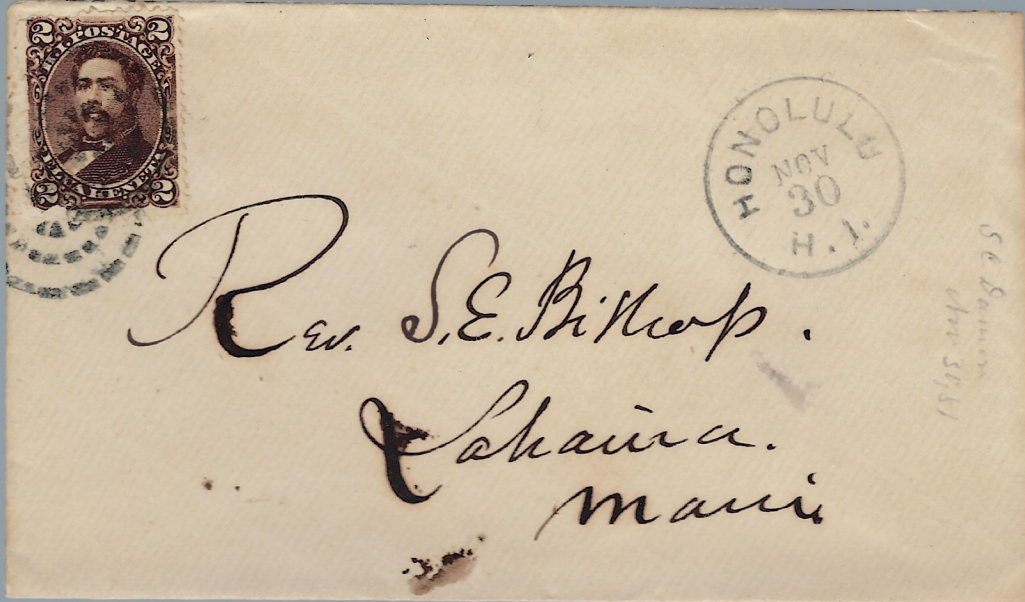 2 2
H.I. POSTAGE
ELUA KENETA
2 2
HONOLULU
NOV
30
H.I.
Rev. S.E. Bishop.
Lahaina.
Maui.
S C Damon